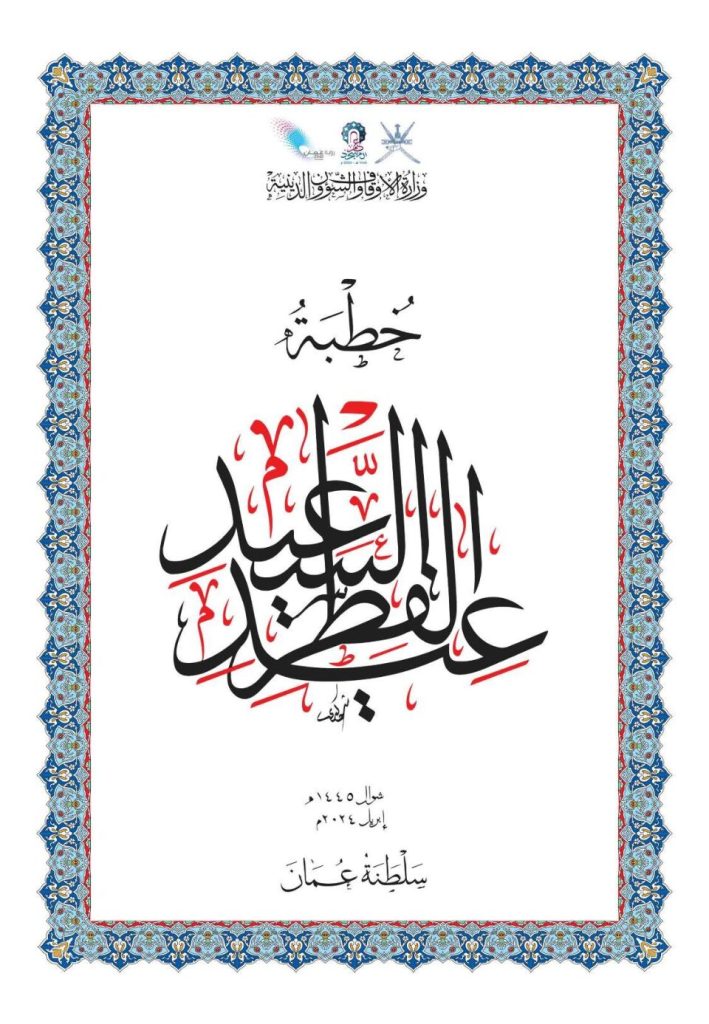 وزارة الأوقاف والشؤون الدينية
خُطْبَةُ
عِيدِ الفِطْرِ السَّعِيدِ
شوال ١٤٤٥هـ
إبريل ٢٠٢٤م
سَلْطَنَةُ عُمَانَ